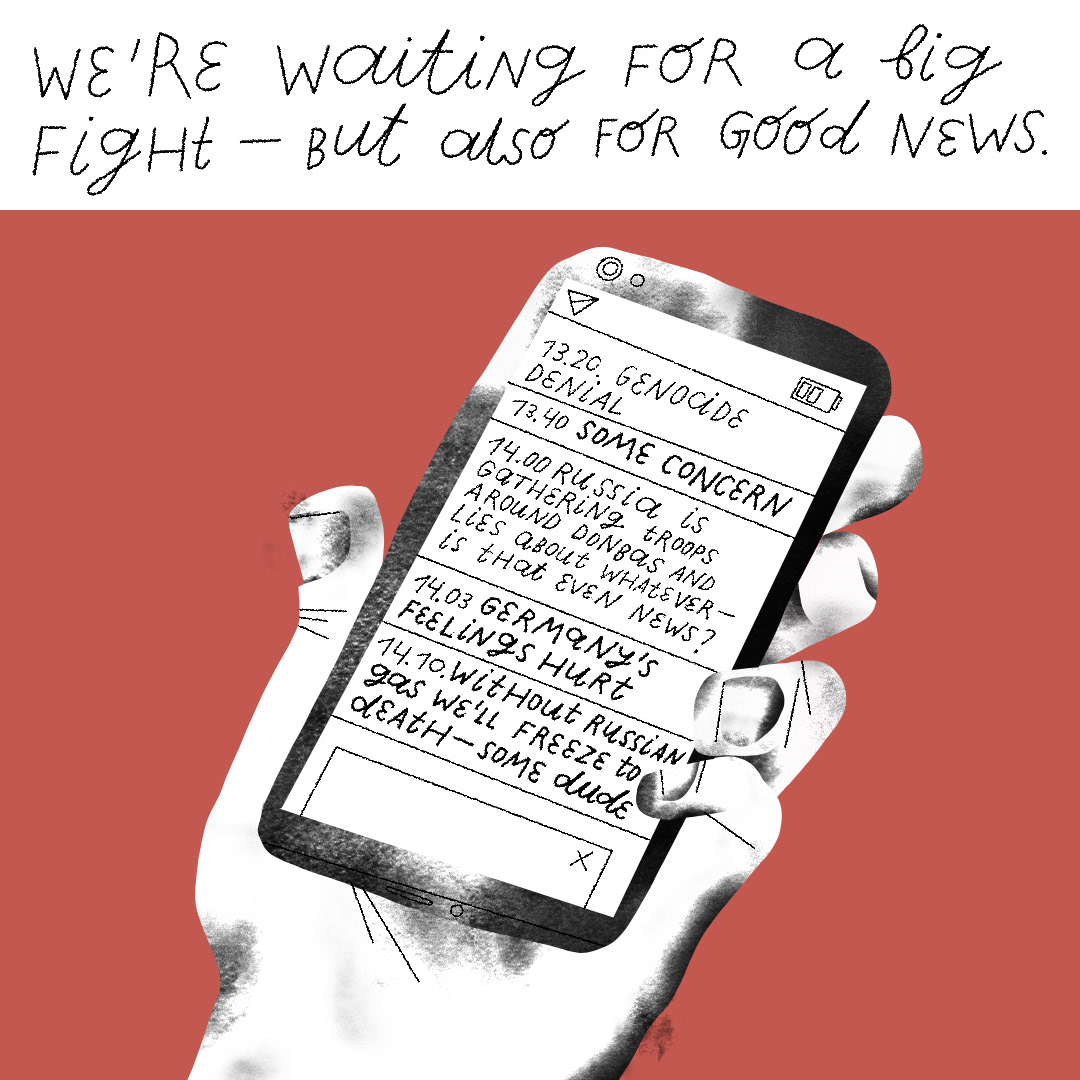 WE'RE WAitiNg FOR a big
FigHt — but also FOR GOOd NEWS.
13.20. GENOCiDE
DENiAL
13.40 SOME CONCERN
14.00 RUSSia iS
GatHERiNg tROOPS
AROUND DONBaS AND
LiES aBOUt WHAtEVER —
iS tHat EVEN NEWS?
14.03 GERMaNy'S
FEELiNgS HURt
14.10. WitHOUt RUSSiAN
gas WE'LL FREEZE to
dEAtH — SOME dudE